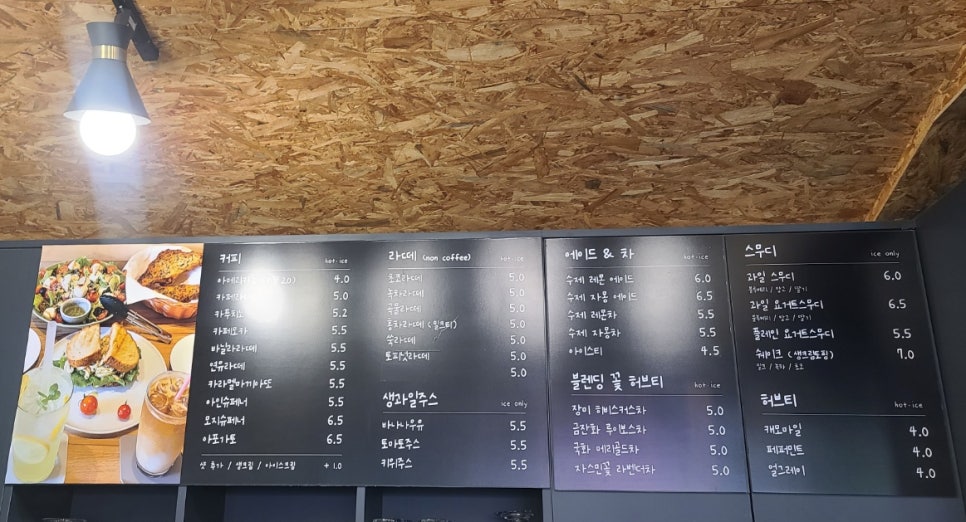 커피 hot·ice
아메리카노 4.0
카페라떼 5.0
카푸치노 5.2
카페모카 5.5
바닐라라떼 5.5
연유라떼 5.5
카라멜마끼아또 5.5
아인슈페너 5.5
모지슈페너 6.5
아포가토 6.5
샷 추가 / 생크림 / 아이스크림 + 1.0
라떼 (non coffee) hot·ice
초코라떼 5.0
녹차라떼 5.0
곡물라떼 5.0
홍차라떼 (밀크티) 5.0
쑥라떼 5.0
토피넛라떼 5.0
5.0
생과일주스 ice only
바나나우유 5.5
토마토주스 5.5
키위주스 5.5
에이드 & 차 hot·ice
수제 레몬 에이드 6.0
수제 자몽 에이드 6.5
수제 레몬차 5.5
수제 자몽차 5.5
아이스티 4.5
블렌딩 꽃 허브티 hot·ice
장미 히비스커스차 5.0
금잔화 루이보스차 5.0
국화 메리골드차 5.0
자스민꽃 라벤더차 5.0
스무디 ice only
과일 스무디 6.0
블루베리 / 망고 / 딸기
과일 요거트스무디 6.5
블루베리 / 망고 / 딸기
플레인 요거트스무디 5.5
쉐이크 (생크림토핑) 7.0
밀크 / 녹차 / 초코
허브티 hot·ice
캐모마일 4.0
페퍼민트 4.0
얼그레이 4.0